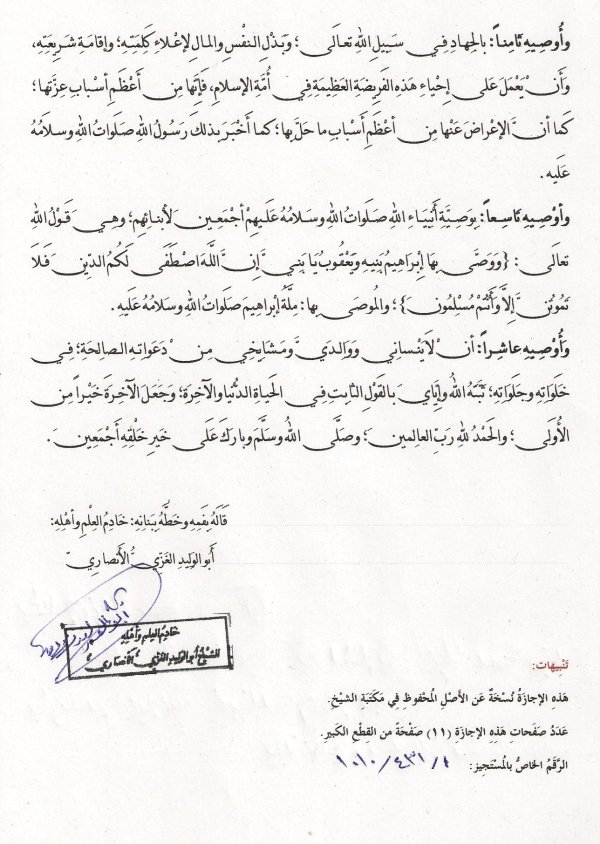 وأُوصِيهِ ثَامِناً: بالجِهادِ فِي سَبِيلِ اللهِ تعالَى؛ وبَذْلِ النفْسِ والمالِ لإعْلاءِ كَلِمَتِهِ؛ وإقامَةِ شَرِيعَتِهِ،
وَأَنْ يَعْمَلَ عَلَى إحْياءِ هَذِهِ الفَرِيضَةِ العَظِيمَةِ فِي أُمَّةِ الإسلامِ، فَإنَّها مِن أَعْظَمِ أسبابِ عِزَّتِها؛
كَما أنَّ الإعْراضَ عَنْها مِن أعْظَمِ أَسْبابِ ما حَلَّ بِها؛ كما أَخْبَرَ بذلكَ رَسُولُ اللهِ صَلَواتُ اللهِ وسلامُهُ
عَلَيه.
وأوْصِيهِ تَاسِعاً: بِوَصِيَّةِ أَنْبِيَاءِ اللهِ صَلَوَاتُ اللهِ وسَلامُهُ عَلَيهِمْ أجْمَعِين لأبنائِهِم؛ وهِيَ قَوْلُ اللهِ
تعالَى: {وَوَصَّى بِهَا إِبْرَاهِيمُ بَنِيهِ وَيَعْقُوبُ يَا بَنِيَّ إِنَّ اللَّهَ اصْطَفَى لَكُمُ الدِّينَ فَلَا
تَمُوتُنَّ إِلَّا وَأَنْتُمْ مُسْلِمُونَ}؛ والمُوصَى بِها: مِلَّةُ إبْراهِيمَ صَلَوَاتُ اللهِ وسَلامُهُ عَلَيهِ.
وَأُوصِيهِ عاشِراً: أنْ لَا يَنْسانِي وَوَالِدَيَّ وَمَشَايِخِي مِنْ دَعَواتِهِ الصالِحَةِ؛ فِي
خَلَوَاتِهِ وجلَوَاتِهِ؛ ثَبَّتَهُ اللهُ وإيَّايَ بالقَوْلِ الثابِتِ فِي الحَياةِ الدُّنْيا والآخِرَةِ؛ وجَعَلَ الآخِرَةَ خَيْراً مِن
الأُولَى؛ والحَمْدُ للهِ رَبِّ العالمِين؛ وصَلَّى اللهُ وسَلَّمَ وبارَكَ عَلَى خَيرِ خَلْقِهِ أجْمَعِينَ.
قالَهُ بِفَمِهِ وخَطَّهُ بِبَنانِهِ: خَادِمُ العِلْمِ وأهْلِهِ:
أبو الوليدِ الغَزِّيُّ الأنْصارِيّ
خادِمُ العِلم وَأهلِهِ
الشيخُ أبو الوليد الغزيُّ الأنصاريُّ
تَنْبِيهات:
هَذِهِ الإجازَةُ نُسْخَةٌ عَن الأصْلِ المَحْفُوظِ فِي مَكْتَبَةِ الشيْخِ.
عَدَدُ صَفَحاتِ هَذِهِ الإجازَةِ (١١) صَفْحَةً من القِطْعِ الكَبِيرِ.
الرَّقمُ الخاصُّ بالمُسْتَجِيزِ: